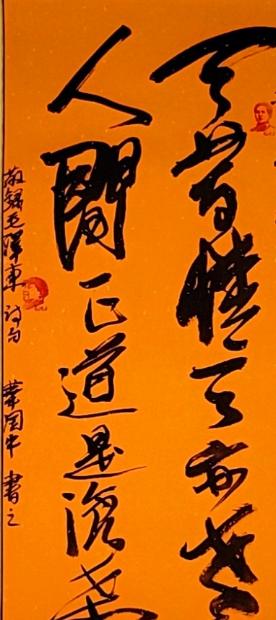 天若有情天亦老
人間正道是滄桑
敬錄毛澤東诗句 国中書之